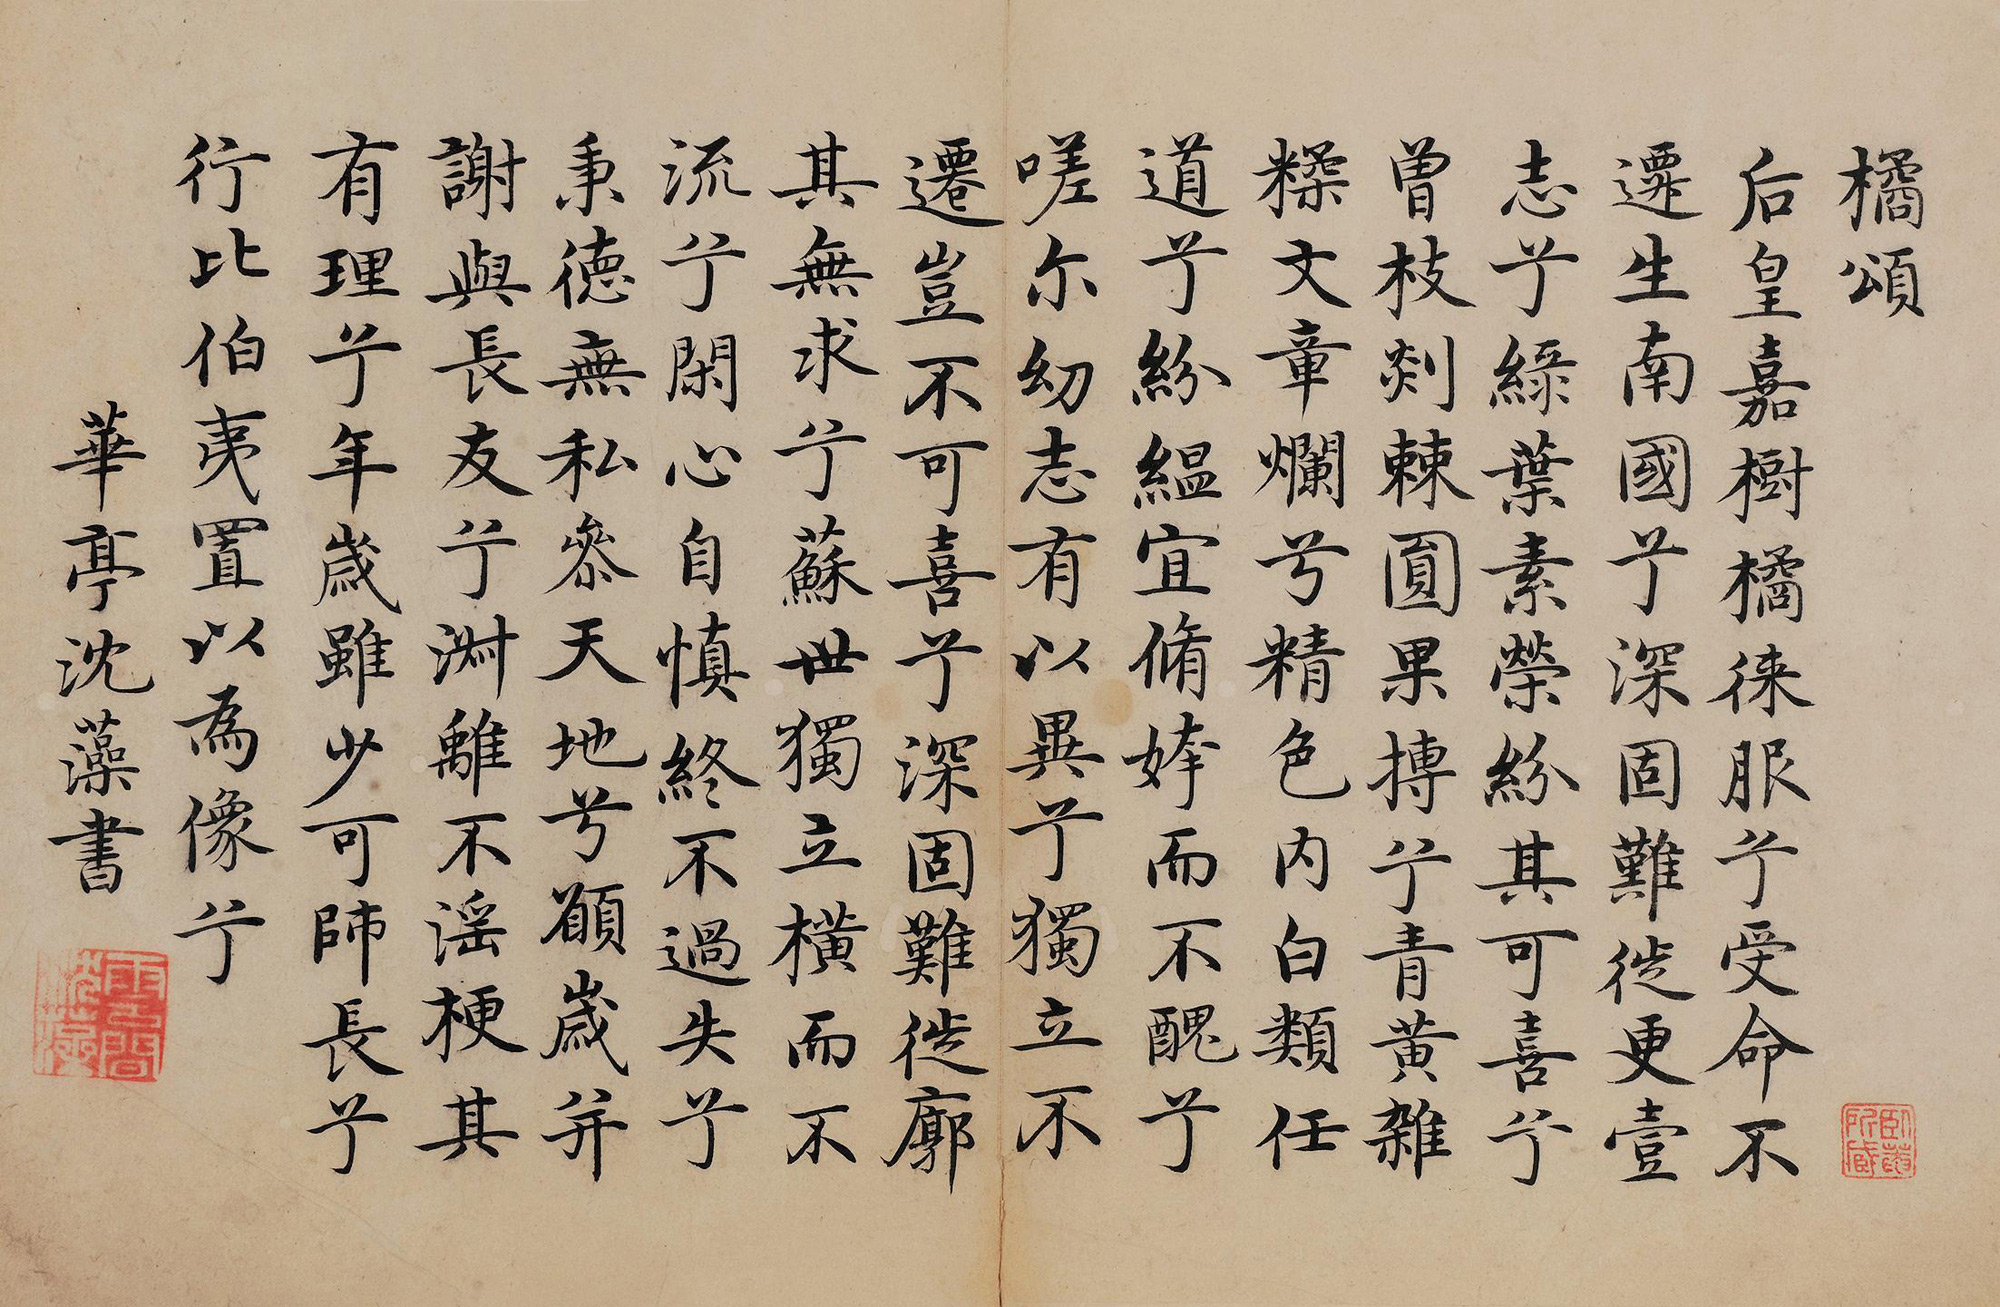 橘頌
后皇嘉樹橘徠服兮受命不
遷生南國兮深固難徙更壹
志兮綠葉素榮紛其可喜兮
曾枝剡棘圓果摶兮青黃雜
糅文章爛兮精色内白類任
道兮紛緼宜脩姱而不醜兮
嗟尔幼志有以異兮獨立不
遷豈不可喜兮深固難徙廓
其無求兮蘇世獨立橫而不
流兮閑心自慎終不過失兮
秉德無私叅天地兮願歲并
謝與長友兮淋離不滛梗其
有理兮年歲雖少可師長兮
行比伯夷置以為像兮
華亭沈藻書
雲間沈藻